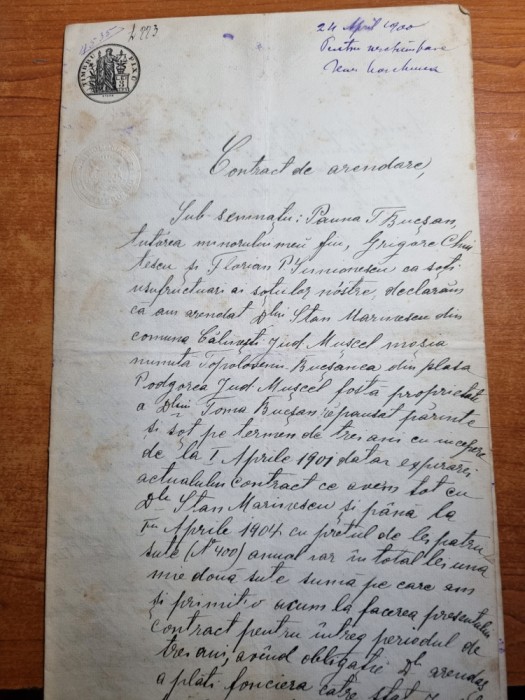 L 223
TIMBRU FIX
24 April 1900
Pentru
Contract de arendare,
Sub-semnatu: Pauna T Bucșan,
tutărea minorului meu fiu, Grigore Chi
țescu și Florian P. Simionescu ca soți
usufructuari ai soțiilor nóstre, declarăm
că am arendat Dlui Stan Marinescu din
comuna Călinești Jud. Muscel moșia
numită Topoloveni-Bucșanca din plasa
Podgorea Jud Muscel fostă proprietat
a Dlui Toma Bucșan répausat părinte
și soț pe termen de trei ani cu incepere
de la I Aprile 1901 data expirarei
actualului contract ce avem tot cu
Dl Stan Marinescu și pana la
Aprile 1904 cu prețul de lei patru
sute (No 400) anual iar în total lei una
mie două sute sumă pe care am
și primit-o acum la facerea presentului
contract pentru întreg periodul de
trei ani, avînd obligație Dl arendaș
a plăti fonciera către stat